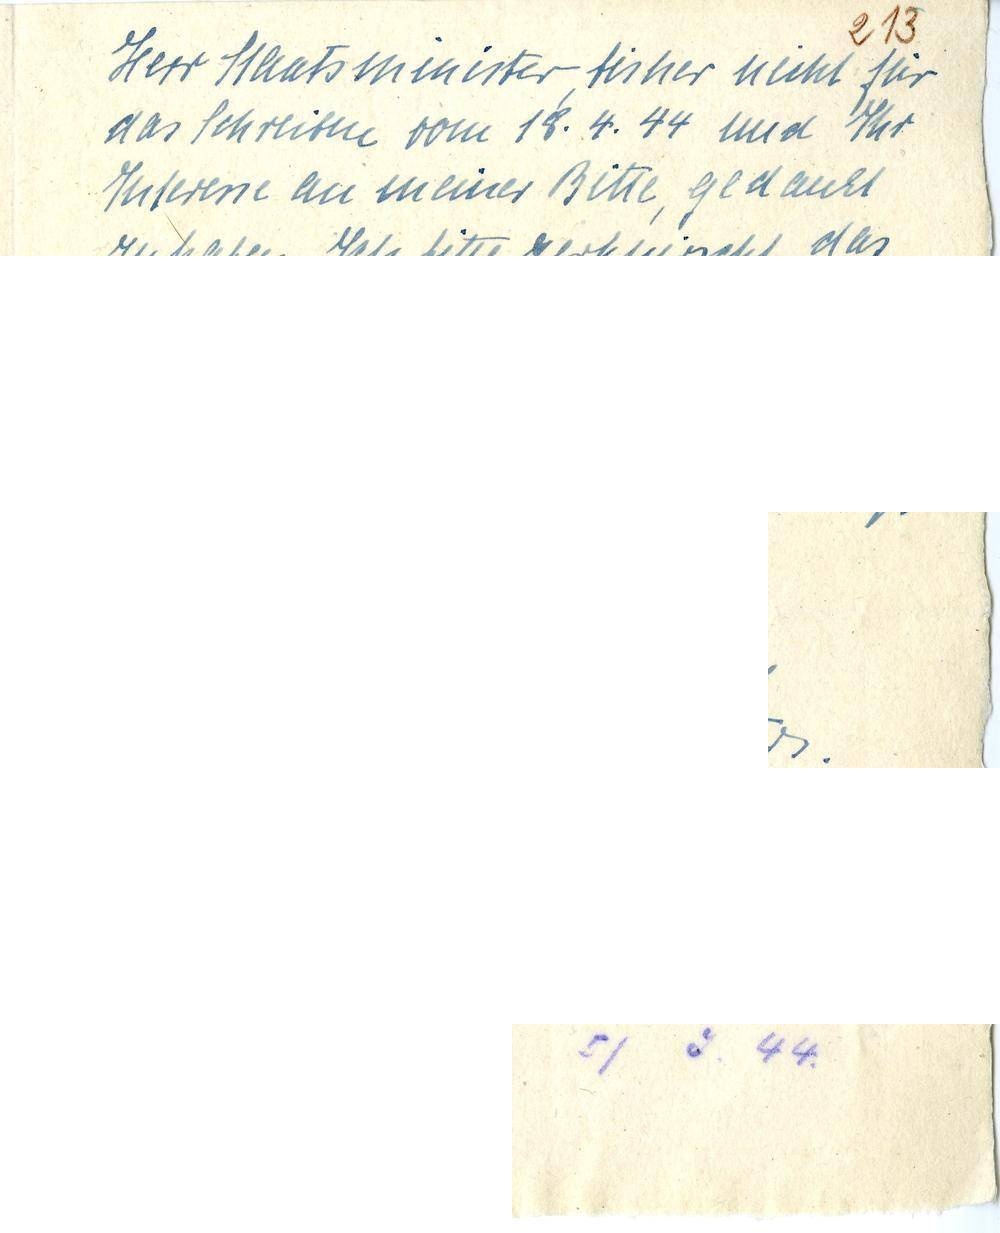 213
Herr Staatsminister, bisher nicht für
das Schreiben vom 18. 4. 44 und Ihr
Interesse an meiner Bitte, gedankt
zu haben. Ich bitte zerknirscht das
44.